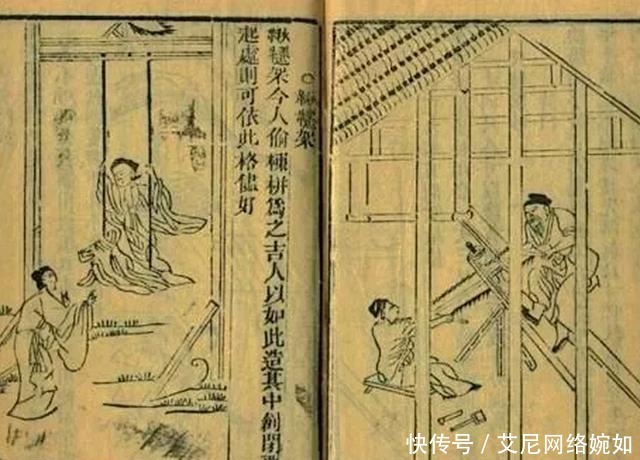 ○鞦韆架
鞦韆架今人偷棟栟爲之吉人以如此造其中創閒
起處則可依此格儘好
快传号 / 艾尼网络婉如